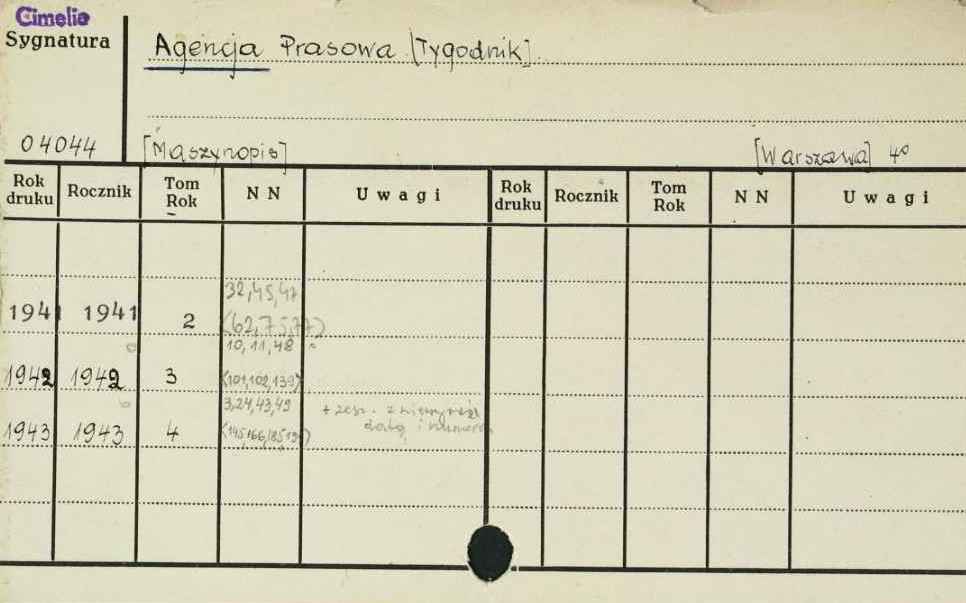 Cimelia
Sygnatura
Agencja Prasowa [Tygodnik]
04044
[Maszynopis]
[Warszawa] 4°
Rok druku Rocznik Tom Rok NN Uwagi Rok druku Rocznik Tom Rok NN Uwagi
32,45,47
1941 1941 2 (62,75,77)
10,11,48
1942 1942 3 (101,102,139)
3,24,43,49 + zesz. z
1943 1943 4 datą i